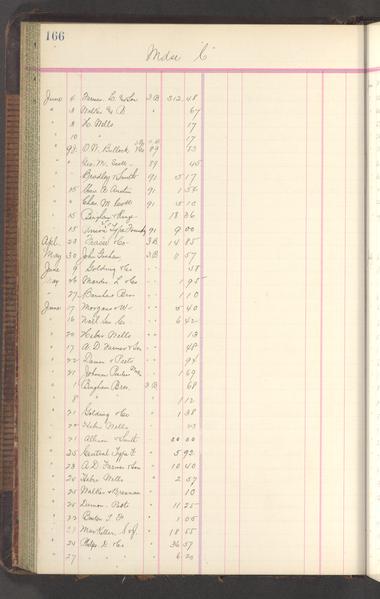 166
Mdse "C"
June 6 Farmer, L. & Son 3 B 312 48
" 8 Walker & B 67
" 8 H. Wells 17
" 10 " 17
" O.W. Bullock 89 83
" Geo. M. Scott 89 45
" Bradley & Smith 91 5 17
" 15 Chas. E. Austin 91 1 56
" " Chas. M. Scott 91 15 10
" 15 Bingham & King 18 36
" 15 Union Type Foundry 91 9 00
Apl. 23 Fraser & Co 3B 14 85
May 30 John Graham 3B 11 57
June 9 Golding & Co 58
May 26 Marder, L & Co 1 95
" 27 Barnhart Bro 1 10
June 17 Morgans & W 5 40
" 16 Natl. Co 6 42
" 20 Heber Wells 13
" 17 A. D. Farmer & Son 48
" 22 Damon & Peets 94
" 21 Johnson Peerless 1 69
" 1 Bingham Bros. 3B 68
" 8 " 1 12
" 21 Golding & Co 1 38
" 22 Heber Wells 23
" 21 Allison & Smith 20 00
" 25 Central Type F. 5 92
" 23 A. D. Farmer & Son 10 40
" 25 Heber Wells 2 57
" 25 Walker & Bresnan 10
" 25 Damon & Peets 11 25
" 22 Boston T. F. 1 05
" 23 MacKellar, S & J. 18 55
" 24 Phelps, D & Co 36 57
" 27 " 6 20